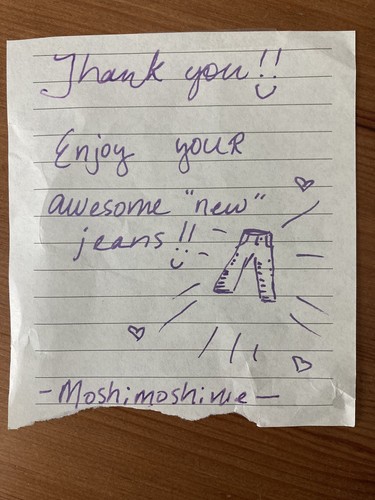 Thank you!!
Enjoy youR
awesome "new"
jeans!!
-Moshimoshime-